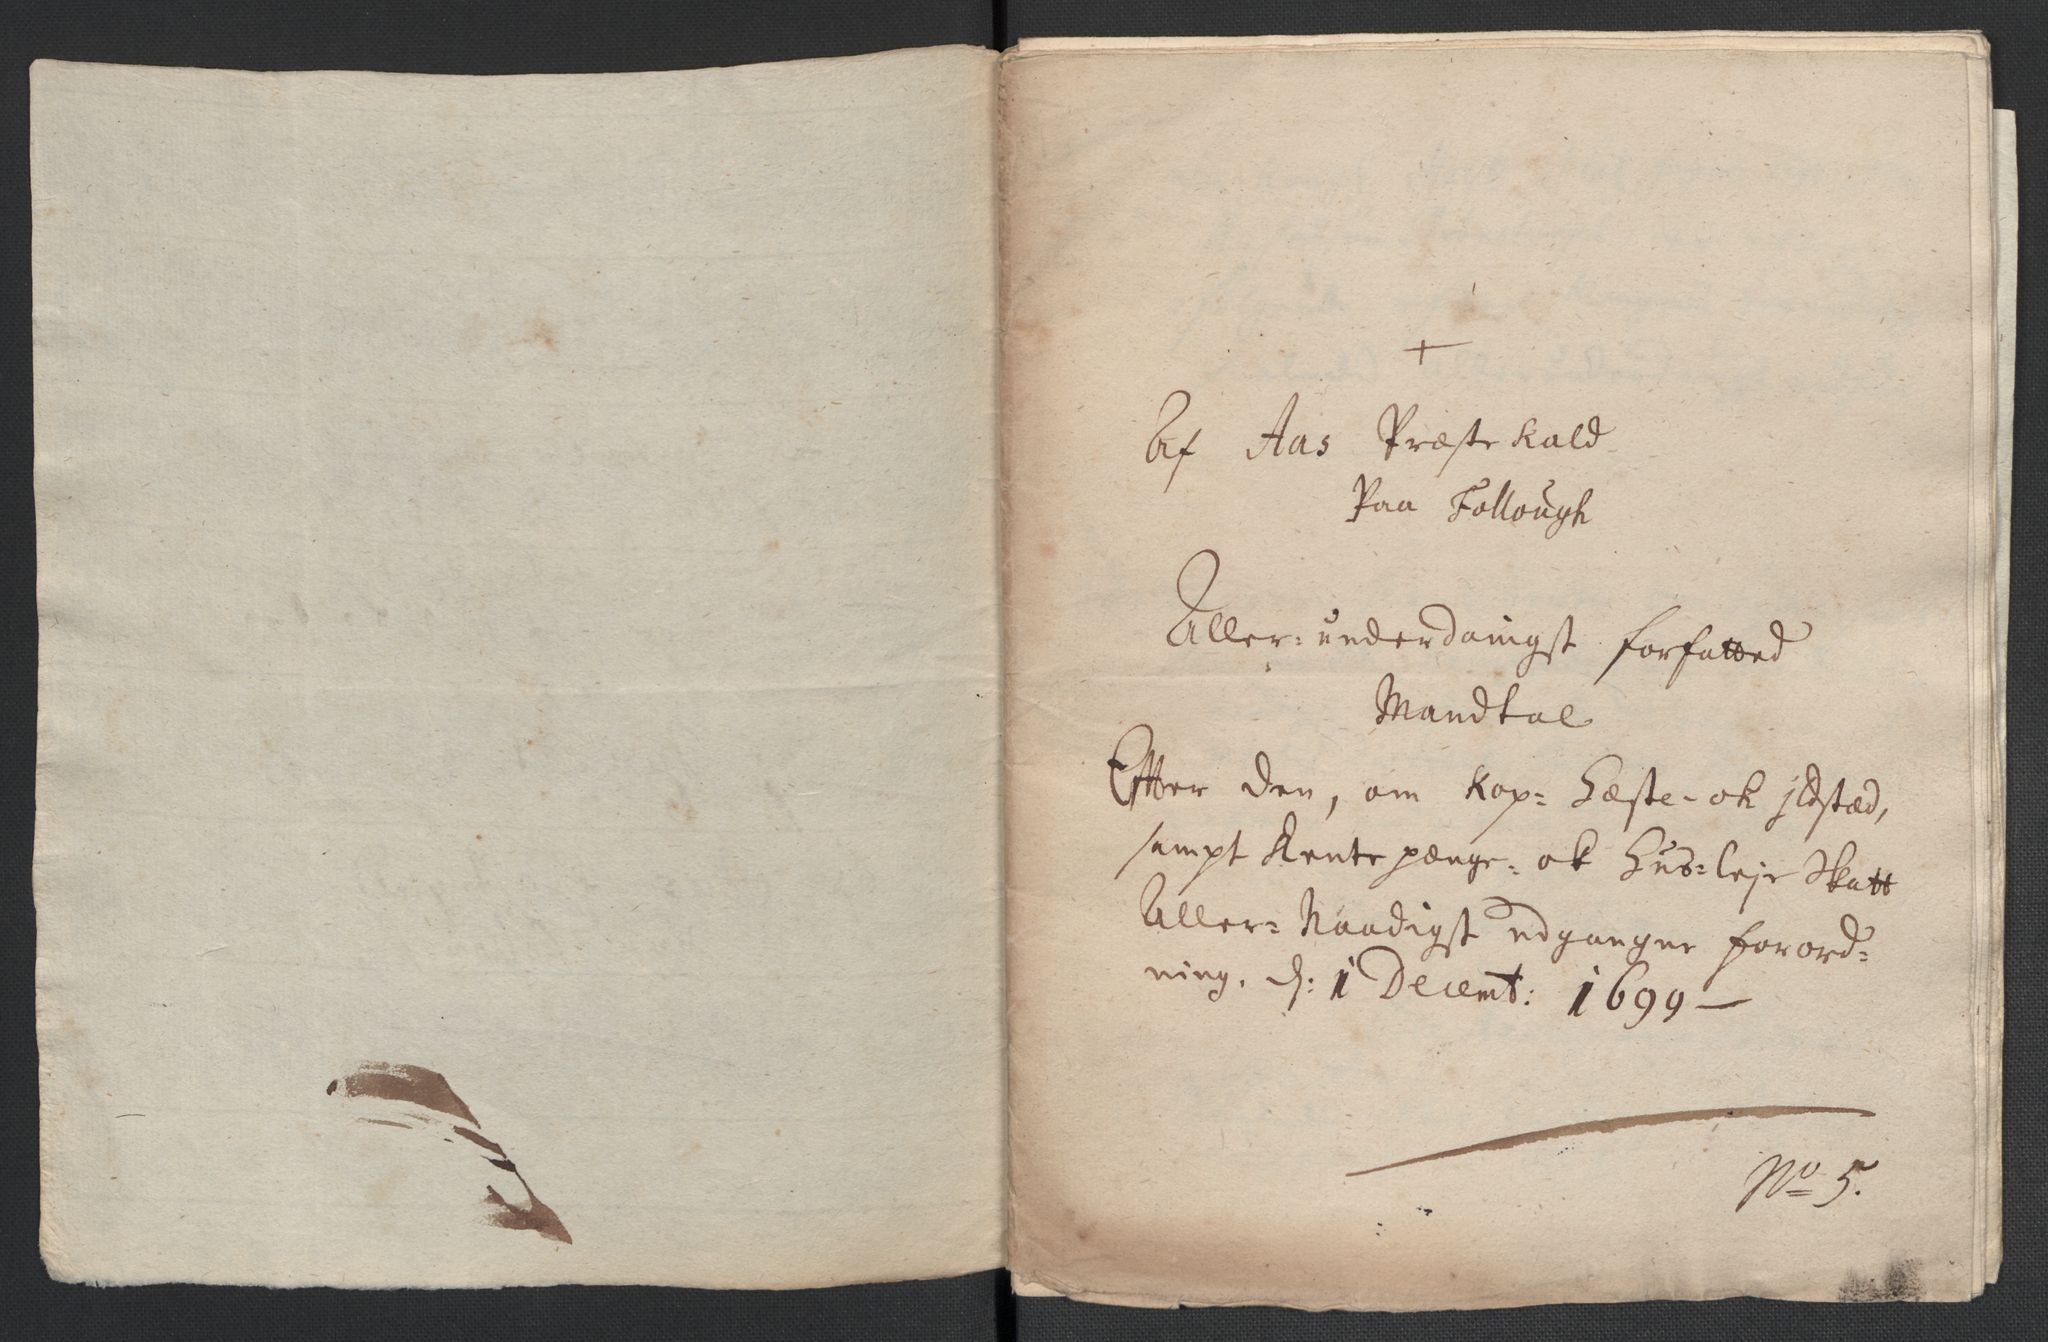 +
Af Aas Præste Kald
Paa Follough
Aller-underdanigst forfatted
Mandtal
Efter den, om Kop- Hæste- ok jldstæd,
sampt Rente penge- ok Huus-leje Skatt
Aller-Naadigst udgangne forord-
ning. d: 1 Decemb: 1699 —
No 5.